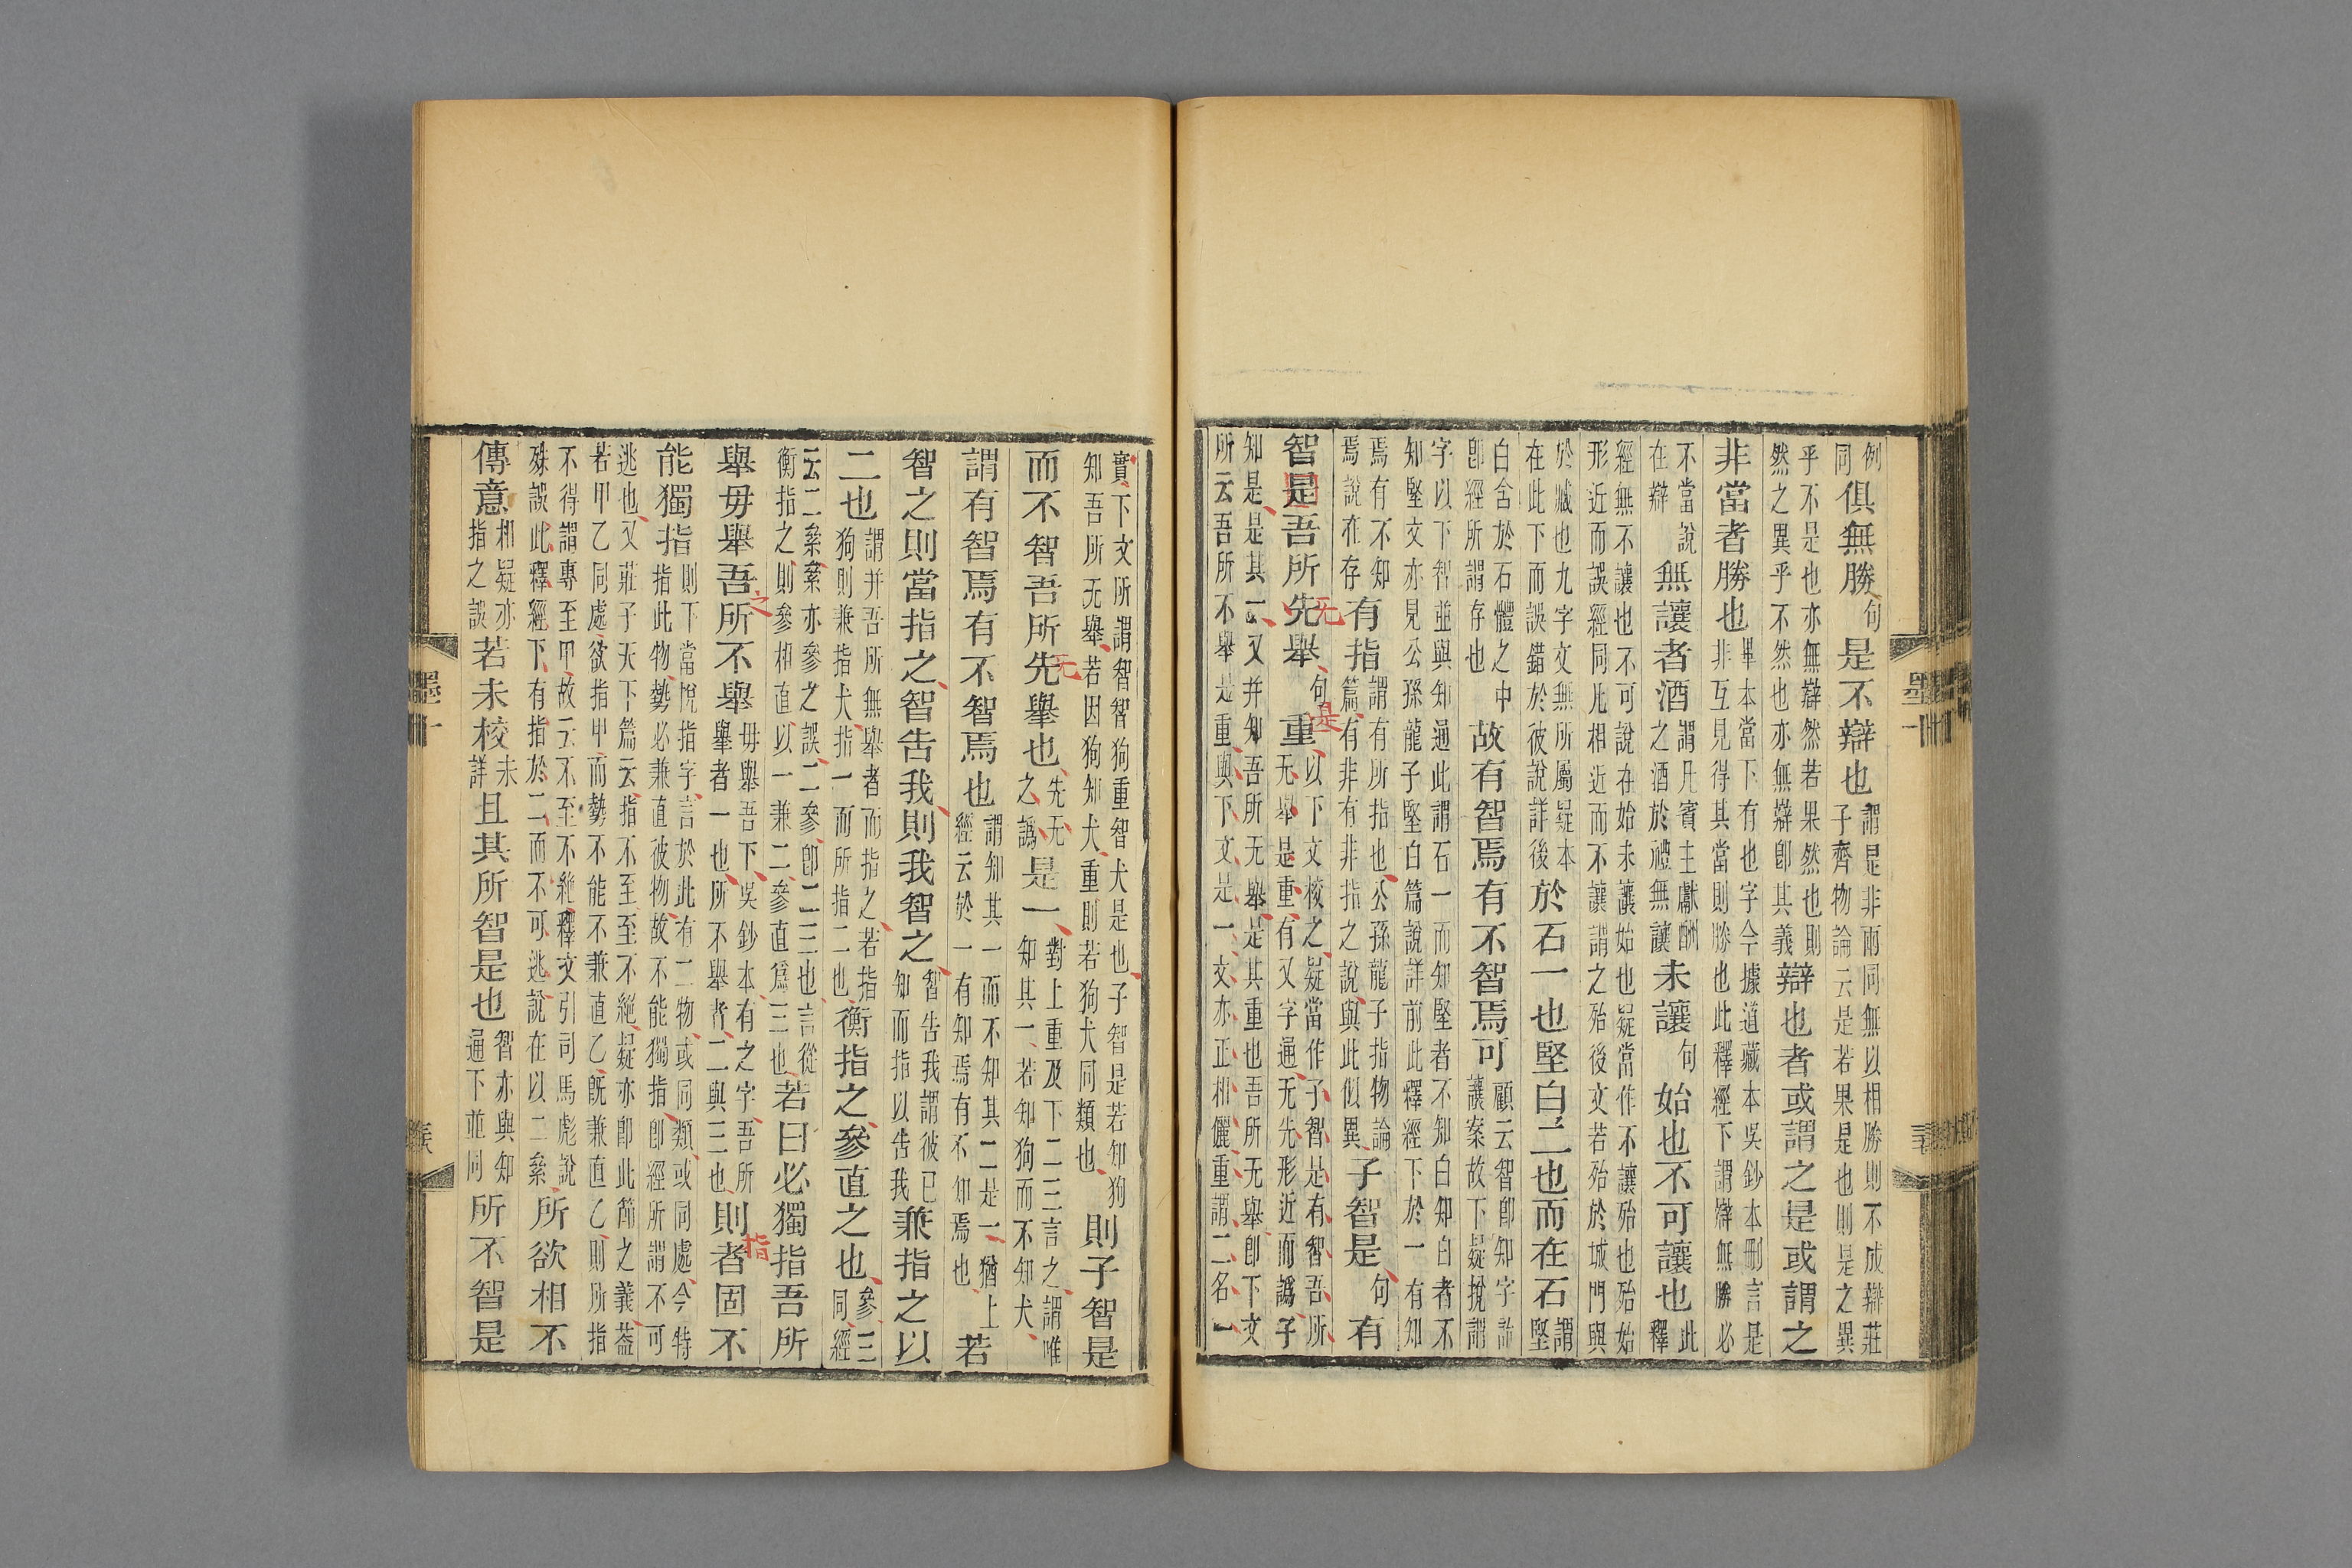 例同俱無勝句是不辯也謂是非兩同無以相勝則不成辯莊子齊物論云是若果是也則是之異
乎不是也亦無辯然若果然也則然之異乎不然也亦無辯卽其義辯也者或謂之是或謂之
非當者勝也畢本當下有也字今據道藏本吳鈔本刪言是非互見得其當則勝也此釋經下謂辯無勝必
不當說在辯無讓者酒謂凡賓主獻酬之酒於禮無讓未讓句始也不可讓也此釋
經無不讓也不可說在始未讓始也疑當作不讓殆也殆始形近而誤經同凡相近而不讓謂之殆後文若殆於城門與
於臧也九字文無所屬疑本在此下而誤錯於彼說詳後於石一也堅白二也而在石謂堅
白含於石體之中卽經所謂存也故有智焉有不智焉可顧云智卽知字詒讓案故下疑挩謂
字以下智並與知通此謂石一而知堅者不知白知白者不知堅文亦見公孫龍子堅白篇說詳前此釋經下於一有知
焉有不知焉說在存有指謂有所指也公孫龍子指物論篇有非有非指之說與此似異子智是句有
智是吾所先舉无句重是以下文校之疑當作子智是有智吾所无舉是重有又字通无先形近而譌子
知是是其一又并知吾所无舉是其重也吾所无舉卽下文所云吾所不舉是重與下文是一文亦正相儷重謂二名一
實下文所謂智智狗重智犬是也子智是若知狗知吾所无舉若因狗知犬重則若狗犬同類也則子智是
而不智吾所先舉也无先无之譌是一對上重及下二三言之謂唯知其一若知狗而不知犬
謂有智焉有不智焉也謂知其一而不知其二是一猶上經云於一有知焉有不知焉也若
智之則當指之智告我則我智之智告我謂彼已知而指以告我兼指之以
二也謂并吾所無舉者而指之若指狗則兼指犬指一而所指二也衡指之參直之也參三同經
云二絫絫亦參之誤二參卽二三也言從衡指之則參相直以一兼二參直爲三也若曰必獨指吾所
舉毋舉吾所不舉之毋舉吾下吳鈔本有之字吾所舉者一也所不舉者二與三也則者固不指
能獨指則下當挩指字言於此有二物或同類或同處今特指此物勢必兼直彼物故不能獨指卽經所謂不可
逃也又莊子天下篇云指不至至不絕疑亦卽此節之義葢若甲乙同處欲指甲而勢不能不兼直乙旣兼直乙則所指
不得謂專至甲故云不至不絕釋文引司馬彪說殊誤此釋經下有指於二而不可逃說在以二絫所欲相不
傳意相疑亦指之誤若未校未詳且其所智是也智亦與知通下並同所不智是
墨十
墨十